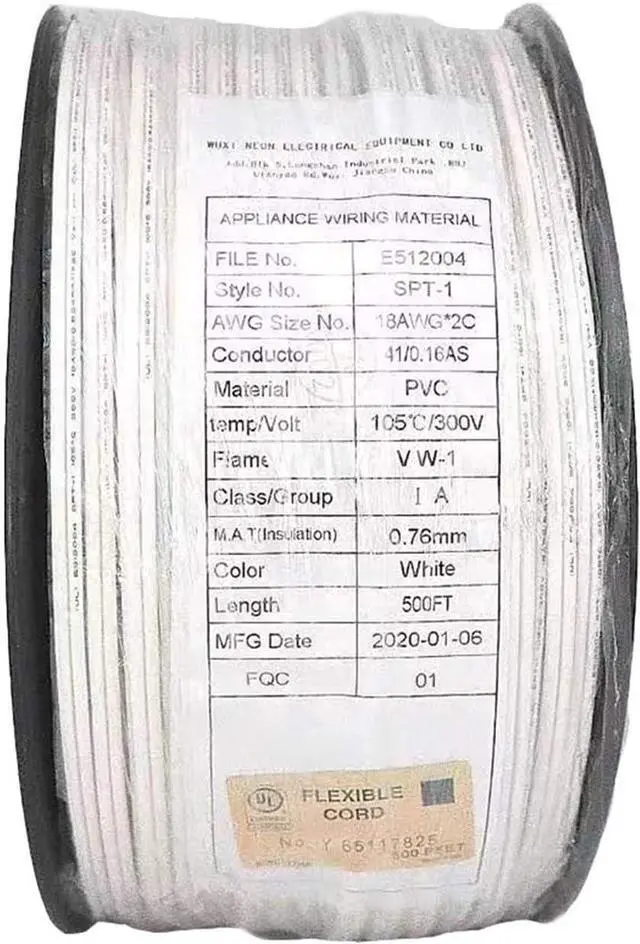 WUXI NEON ELECTRICAL EQUIPMENT CO LTD
Industrial Park
Jiangsu China
APPLIANCE WIRING MATERIAL
FILE No. E512004
Style No. SPT-1
AWG Size No. 18AWG*2C
Conductor 41/0.16AS
Material PVC
temp/Volt 105℃/300V
Flame VW-1
Class/Group I A
M.A.T(Insulation) 0.76mm
Color White
Length 500FT
MFG Date 2020-01-06
FQC 01
UL FLEXIBLE
CORD
No. Y 65117825
500 FEET